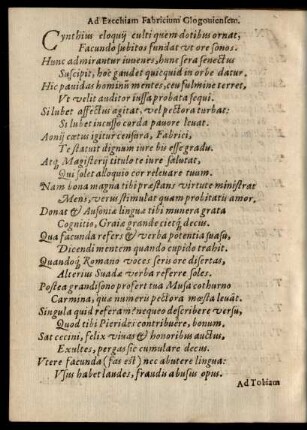 Ad Ezechiam Fabricium Glogouiensem.
Cynthius eloquij culti quem dotibus ornat,
Facundo subitos fundat vt ore sonos.
Hunc admirantur iuuenes, hunc sera senectus
Suscipit, hoc gaudet quicquid in orbe datur.
Hic pauidas hominū mentes, ceu fulmine terret,
Vt velit auditor iussa probata sequi.
Si lubet affectus agitat, vel pectora turbat:
Si lubet incusso corda pauore leuat.
Aonij cœtus igitur censura, Fabrici,
Te statuit dignum iure bis esse gradu.
Atq; Magisterij titulo te iure salutat,
Qui solet alloquio cor releuare tuum.
Nam bona magna tibi præstans virtute ministrat
Mens, verus stimulat quam probitatis amor.
Donat & Ausonia lingua tibi munera grata
Cognitio, Graiæ grande cietq; decus.
Qua facunda refers & verba potentia suasu,
Dicendi mentem quando cupido trahit.
Quandoq; Romano voces seris ore disertas,
Alterius Suadæ verba referre soles.
Postea grandisono profert tua Musa cothurno
Carmina, quæ numeris pectora mœsta leuāt.
Singula quid referam? nequeo describere versu,
Quod tibi Pierides contribuere, bonum.
Sat cecini, felix viuas & honoribus auctus,
Exultes, pergas sic cumulare decus.
Vtere facunda (fas est) nec abutere lingua:
Vsus habet laudes, fraudis abusus opus.
Ad Tobiam